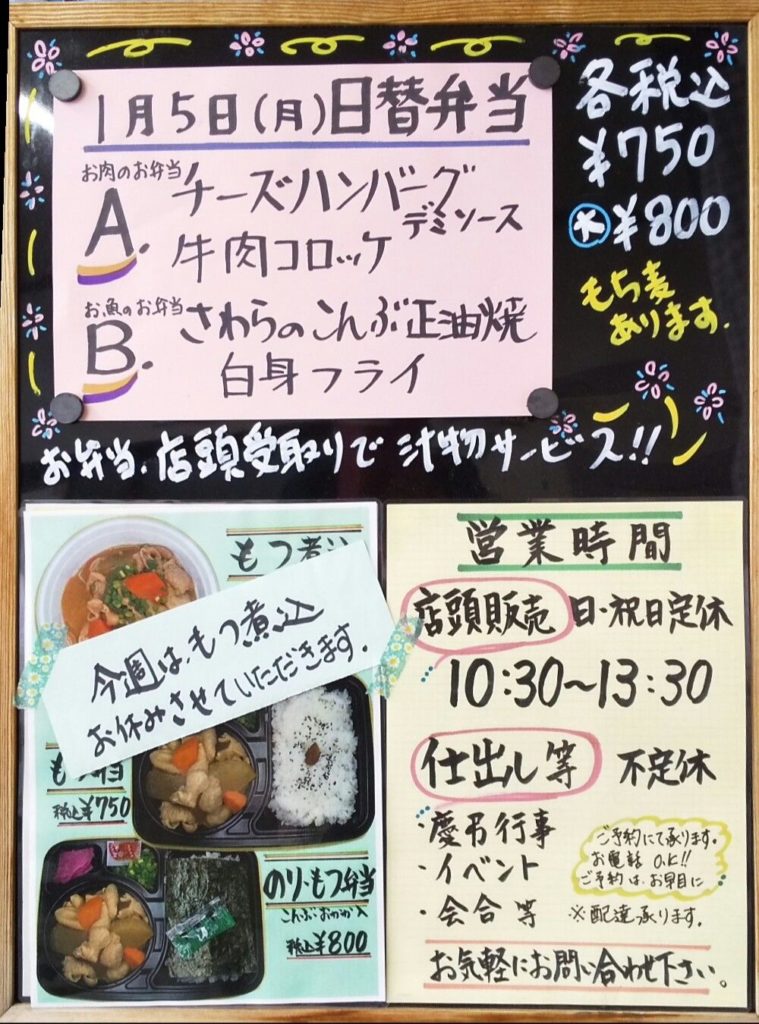 1月5日(月)日替弁当
お肉のお弁当
A. チーズハンバーグ
デミソース
牛肉コロッケ
お魚のお弁当
B. さわらのこんぶ正油焼
白身フライ
各税込
¥750
大 ¥800
もち麦
あります.
お弁当、店頭受取りで 汁物サービス!!
もつ煮込
今週は、もつ煮込
お休みさせていただきます.
税込¥750
のり・もつ弁当
こんぶ・おかか入
税込¥800
営業時間
店頭販売 日・祝日定休
10:30～13:30
仕出し等 不定休
・慶弔行事
・イベント
・会合等
ご予約にて承ります.
お電話 O.K!!
ご予約は、お早目に
※配達承ります.
お気軽にお問い合わせ下さい。